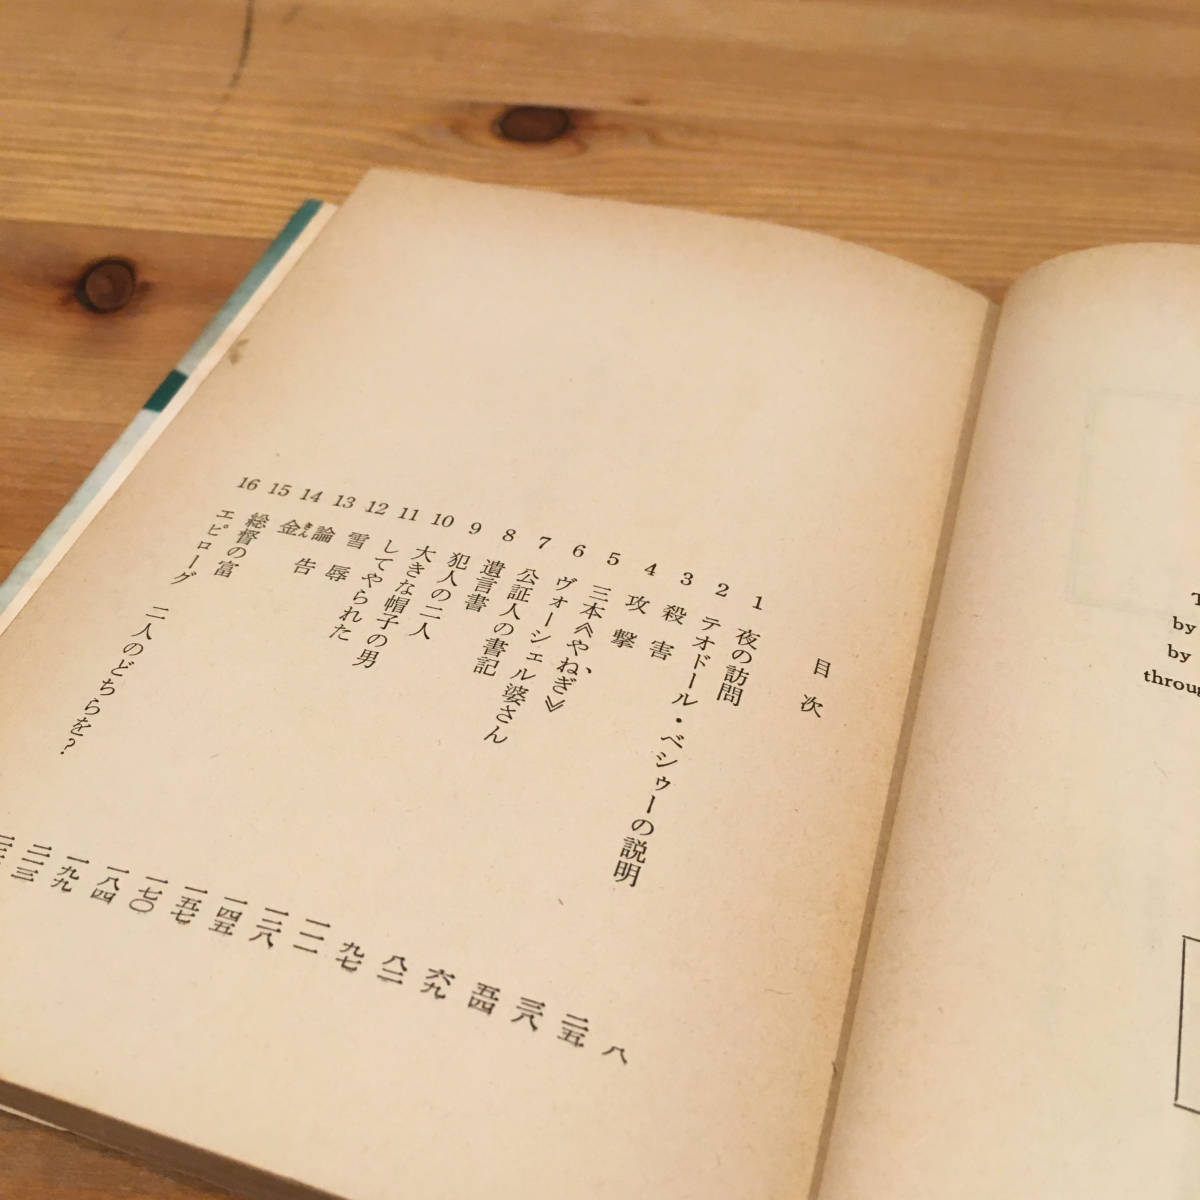 目次
1 夜の訪問 八
2 テオドール・ベシゥーの説明 二五
3 殺害 三八
4 攻撃 五四
5 三本《やねぎ》 六九
6 ヴォーシェル婆さん 八二
7 公証人の書記 九七
8 遺言書 一一一
9 犯人の二人 一二八
10 大きな帽子の男 一四五
11 してやられた 一五七
12 雪辱 一七〇
13 論告 一八四
14 金 きん 一九九
15 総督の富 二一三
16 エピローグ 二人のどちらを?
T
by
by
throug